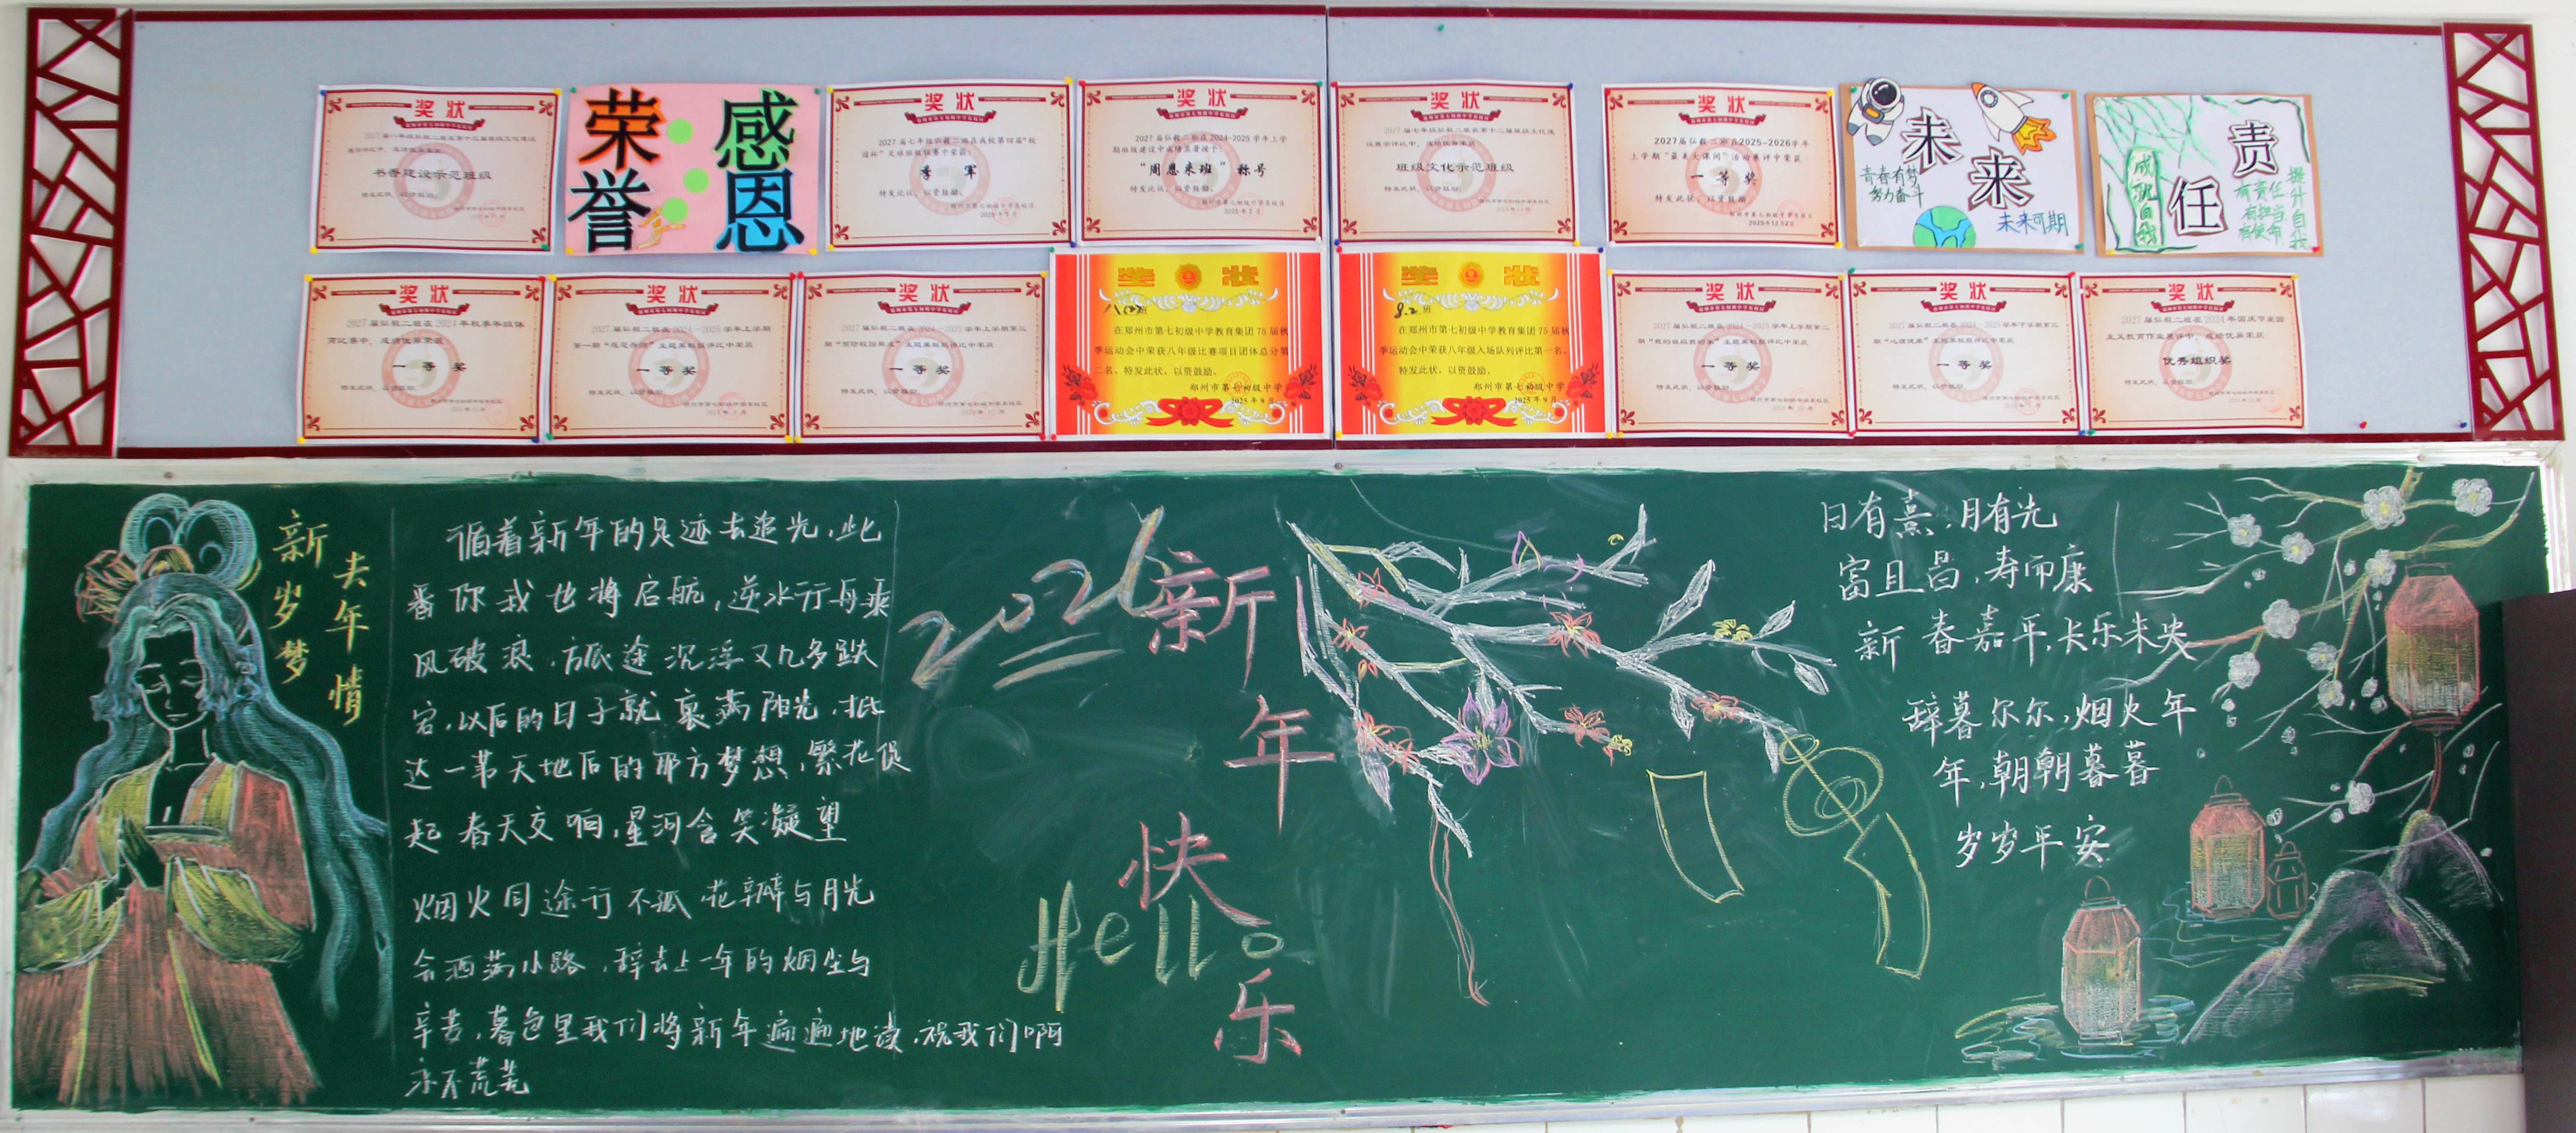 奖状
2027届八年级弘毅二班在第十三届班级文化建设
书香建设示范班级
特发此状，以资鼓励。
荣誉
感恩
奖状
2027届七年级弘毅二班在我校第四届“校
园杯”足球班级联赛中荣获：
季 军
特发此状，以资鼓励。
郑州市第七初级中学东校区
奖状
2027届弘毅二班在2024-2025学年上学
期班级建设中成绩显著授予：
“周恩来班” 称号
特发此状，以资鼓励。
郑州市第七初级中学东校区
奖状
2027届七年级弘毅二班在第十二届班级文化建
设展示评比中，成绩优异荣获
班级文化示范班级
特发此状，以资鼓励。
奖状
2027届弘毅二班在2025-2026学年
上学期“最美大课间”活动展评中荣获：
一 等 奖
特发此状，以资鼓励
郑州市第七初级中学东校区
2025年12月2日
未来
青春有梦
努力奋斗
未来可期
责任
成就自我
有责任
有担当
有使命
提升自我
奖状
2027届弘毅二班在2024年秋季年级体
育比赛中，成绩优异荣获
一 等 奖
特发此状，以资鼓励。
奖状
2027届弘毅二班在2024—2025学年上学期
第一期“感恩母源”主题黑板报评比中荣获
一 等 奖
特发此状，以资鼓励。
奖状
2027届弘毅二班在2024—2025学年上学期第三
期“预防校园欺凌”主题黑板报评比中荣获
一 等 奖
特发此状，以资鼓励。
奖 状
八(2)班
在郑州市第七初级中学教育集团75届秋
季运动会中荣获八年级比赛项目团体总分第
二名，特发此状，以资鼓励。
郑州市第七初级中学
2025年9月
奖 状
8.2班
在郑州市第七初级中学教育集团75届秋
季运动会中荣获八年级入场队列评比第一名，
特发此状，以资鼓励。
郑州市第七初级中学
2025年9月
奖状
2027届弘毅二班在2024—2025学年上学期第二
期“我的班级我的家”主题黑板报评比中荣获
一 等 奖
特发此状，以资鼓励。
奖状
2027届弘毅二班在2024—2025学年下学期第三
期“心理健康”主题黑板报评比中荣获
一 等 奖
特发此状，以资鼓励。
奖状
2027届弘毅二班在2024年国庆节爱国
主义教育作业展评中，成绩优异荣获
优秀组织奖
特发此状，以资鼓励。
新岁梦
去年情
循着新年的足迹去追光，此
番你我也将启航，逆水行舟乘
风破浪，方底途沉浮又几多跌
宕，以后的日子就裹满阳光，抵
达一苇天地后的那方梦想，繁花促
起春天交响，星河含笑凝望
烟火同途行不孤 花瓣与月光
会洒满小路，辞去上一年的烟尘与
辛苦，暮色里我们将新年遍遍地读，祝我们啊
永不荒芜
2026
新年快乐
Hello
日有熹，月有光
富且昌，寿而康
新春嘉年，长乐未央
辞暮尔尔，烟火年
年，朝朝暮暮
岁岁年安